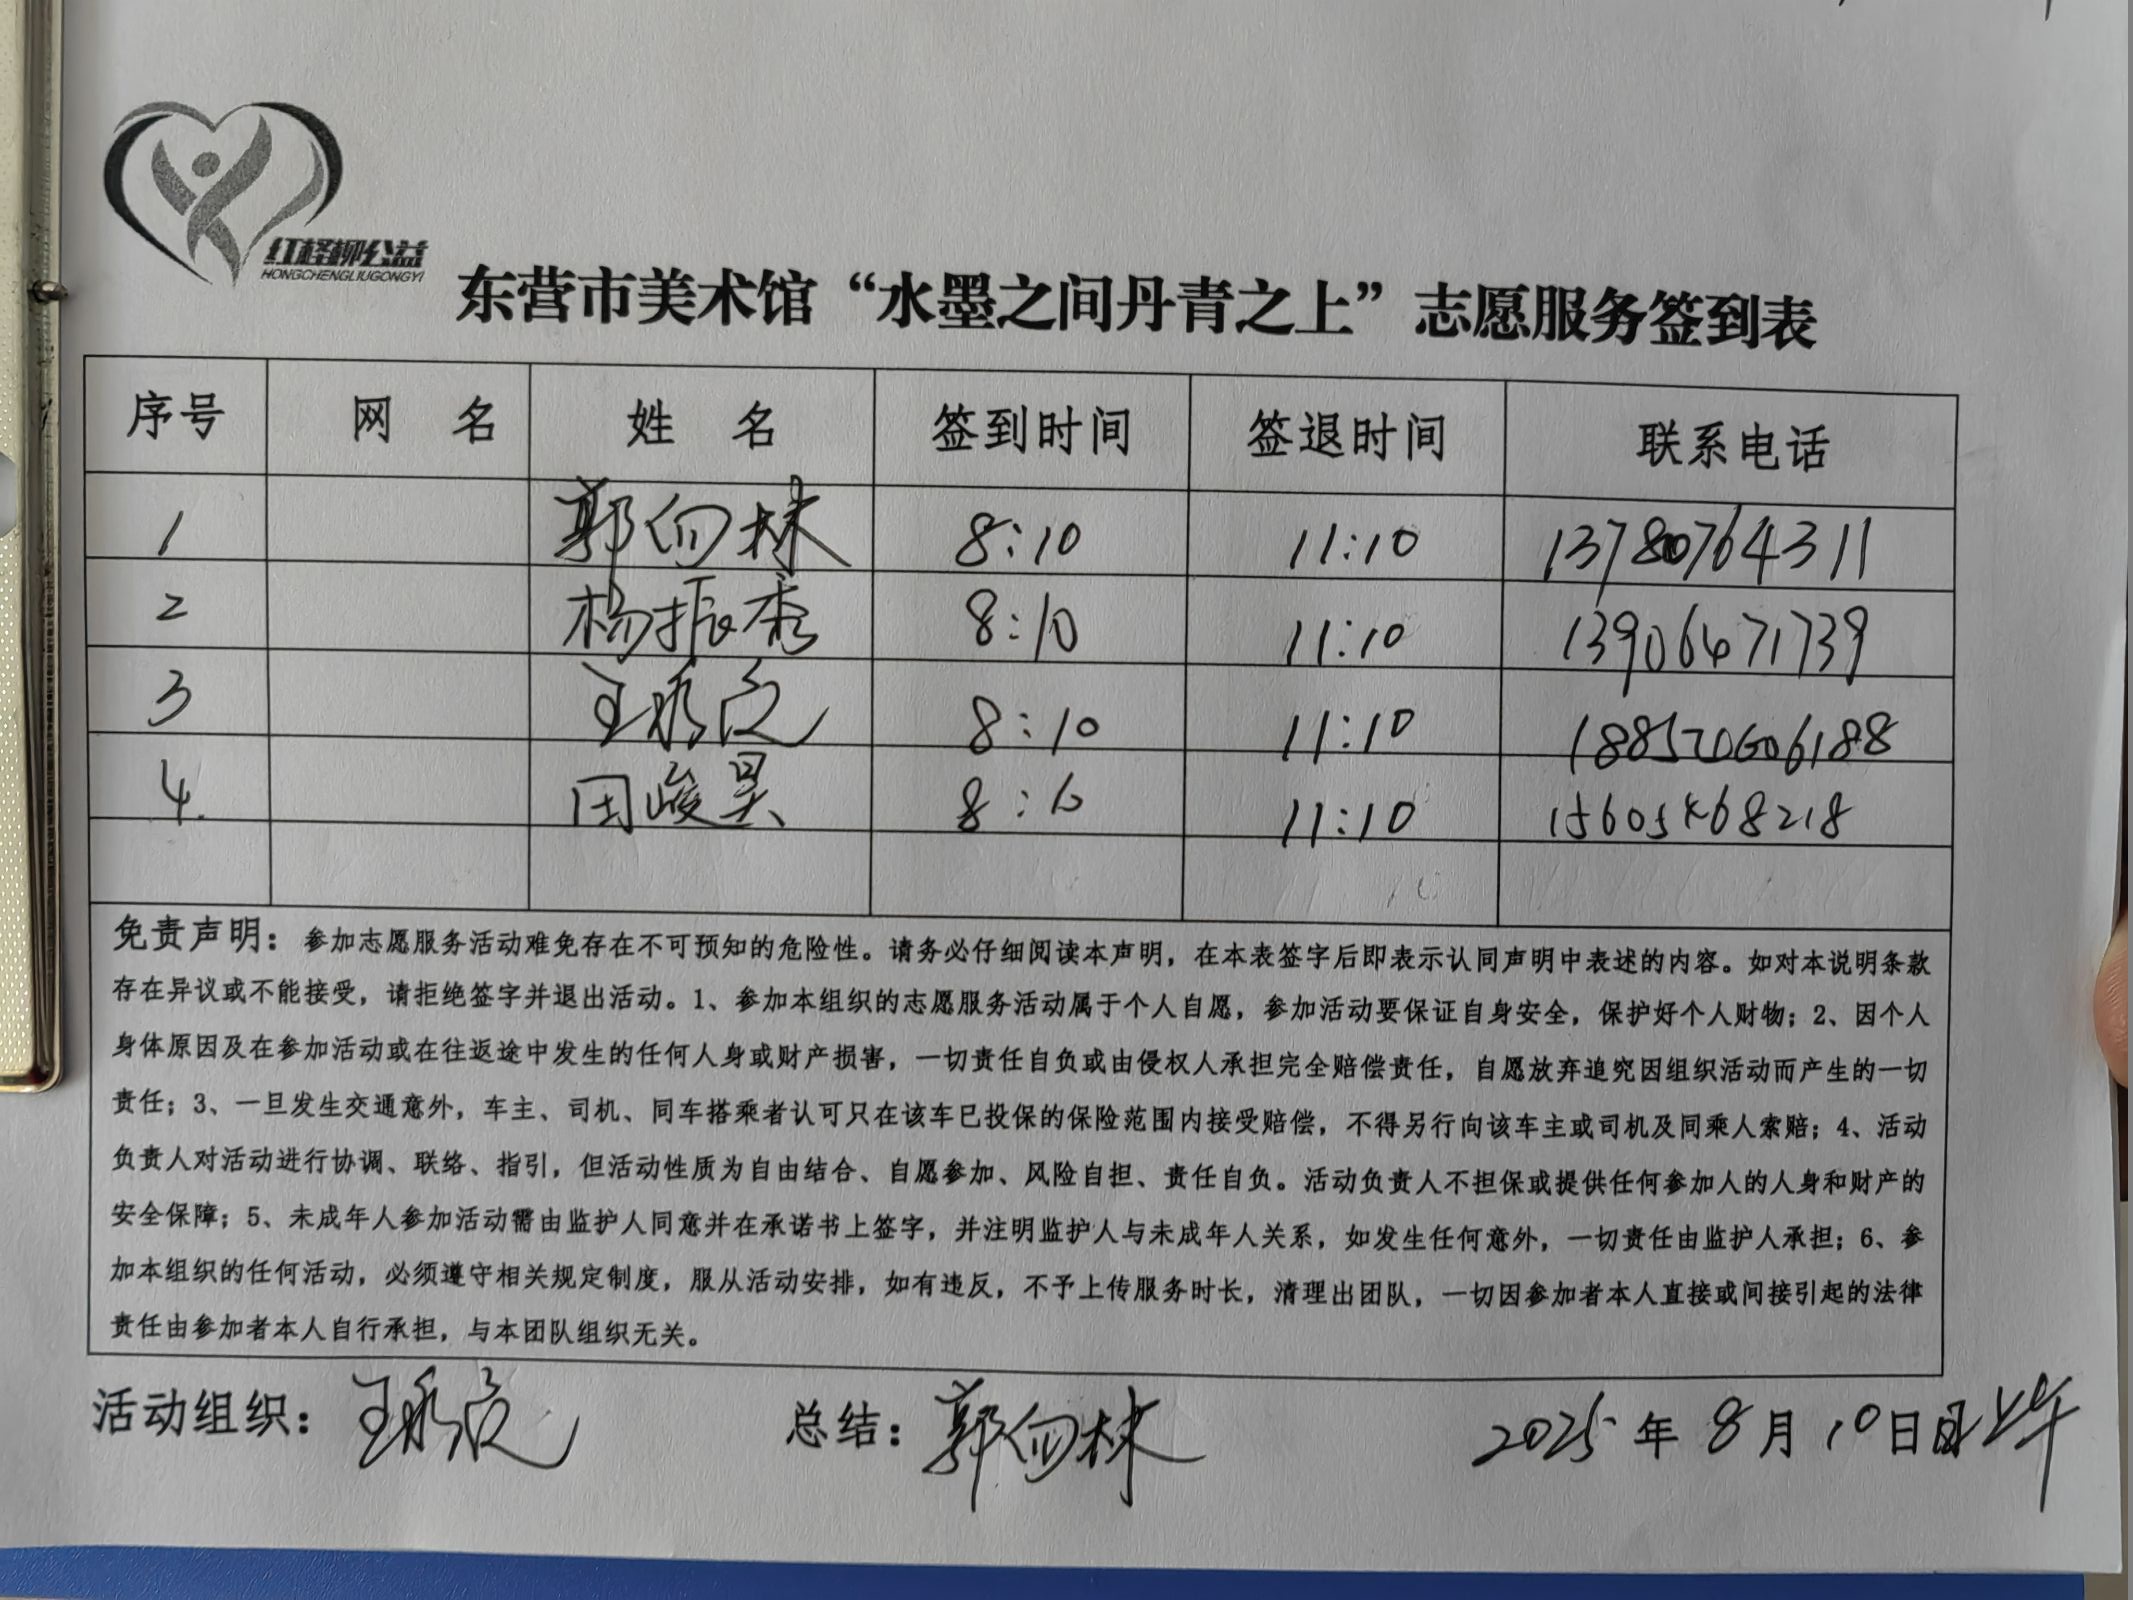 红柽柳公益
HONGCHENGLIUGONGYI
东营市美术馆“水墨之间丹青之上”志愿服务签到表
序号 网 名 姓 名 签到时间 签退时间 联系电话
1 郭向林 8:10 11:10 13780764311
2 杨振秀 8:10 11:10 13906471739
3 8:10 11:10
4. 田峻昊 11:10 15605468218
免责声明：参加志愿服务活动难免存在不可预知的危险性。请务必仔细阅读本声明，在本表签字后即表示认同声明中表述的内容。如对本说明条款
存在异议或不能接受，请拒绝签字并退出活动。1、参加本组织的志愿服务活动属于个人自愿，参加活动要保证自身安全，保护好个人财物；2、因个人
身体原因及在参加活动或在往返途中发生的任何人身或财产损害，一切责任自负或由侵权人承担完全赔偿责任，自愿放弃追究因组织活动而产生的一切
责任；3、一旦发生交通意外，车主、司机、同车搭乘者认可只在该车已投保的保险范围内接受赔偿，不得另行向该车主或司机及同乘人索赔；4、活动
负责人对活动进行协调、联络、指引，但活动性质为自由结合、自愿参加、风险自担、责任自负。活动负责人不担保或提供任何参加人的人身和财产的
安全保障；5、未成年人参加活动需由监护人同意并在承诺书上签字，并注明监护人与未成年人关系，如发生任何意外，一切责任由监护人承担；6、参
加本组织的任何活动，必须遵守相关规定制度，服从活动安排，如有违反，不予上传服务时长，清理出团队，一切因参加者本人直接或间接引起的法律
责任由参加者本人自行承担，与本团队组织无关。
活动组织： 总结：郭向林 2025年8月10日上午